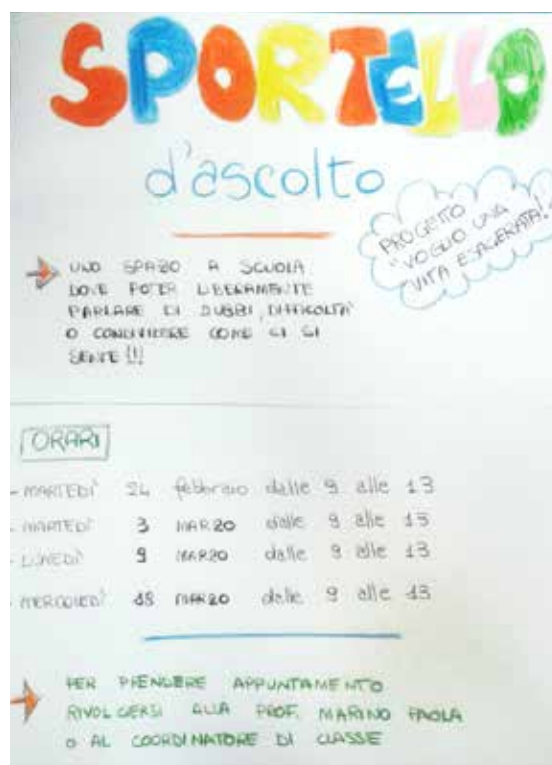 SPORTELLO
d'ascolto
PROGETTO
"VOGLIO UNA
VITA ESAGERATA!"
UNO SPAZIO A SCUOLA
DOVE POTER LIBERAMENTE
PARLARE DI DUBBI, DIFFICOLTA'
O CONDIVIDERE COME CI SI
SENTE!!!
ORARI
- MARTEDI' 24 febbraio dalle 9 alle 13
- MARTEDI' 3 MARZO dalle 9 alle 13
- LUNEDI' 9 MARZO dalle 9 alle 13
- MERCOLEDI' 18 MARZO dalle 9 alle 13
PER PRENDERE APPUNTAMENTO
RIVOLGERSI ALLA PROF. MARINO PAOLA
O AL COORDINATORE DI CLASSE